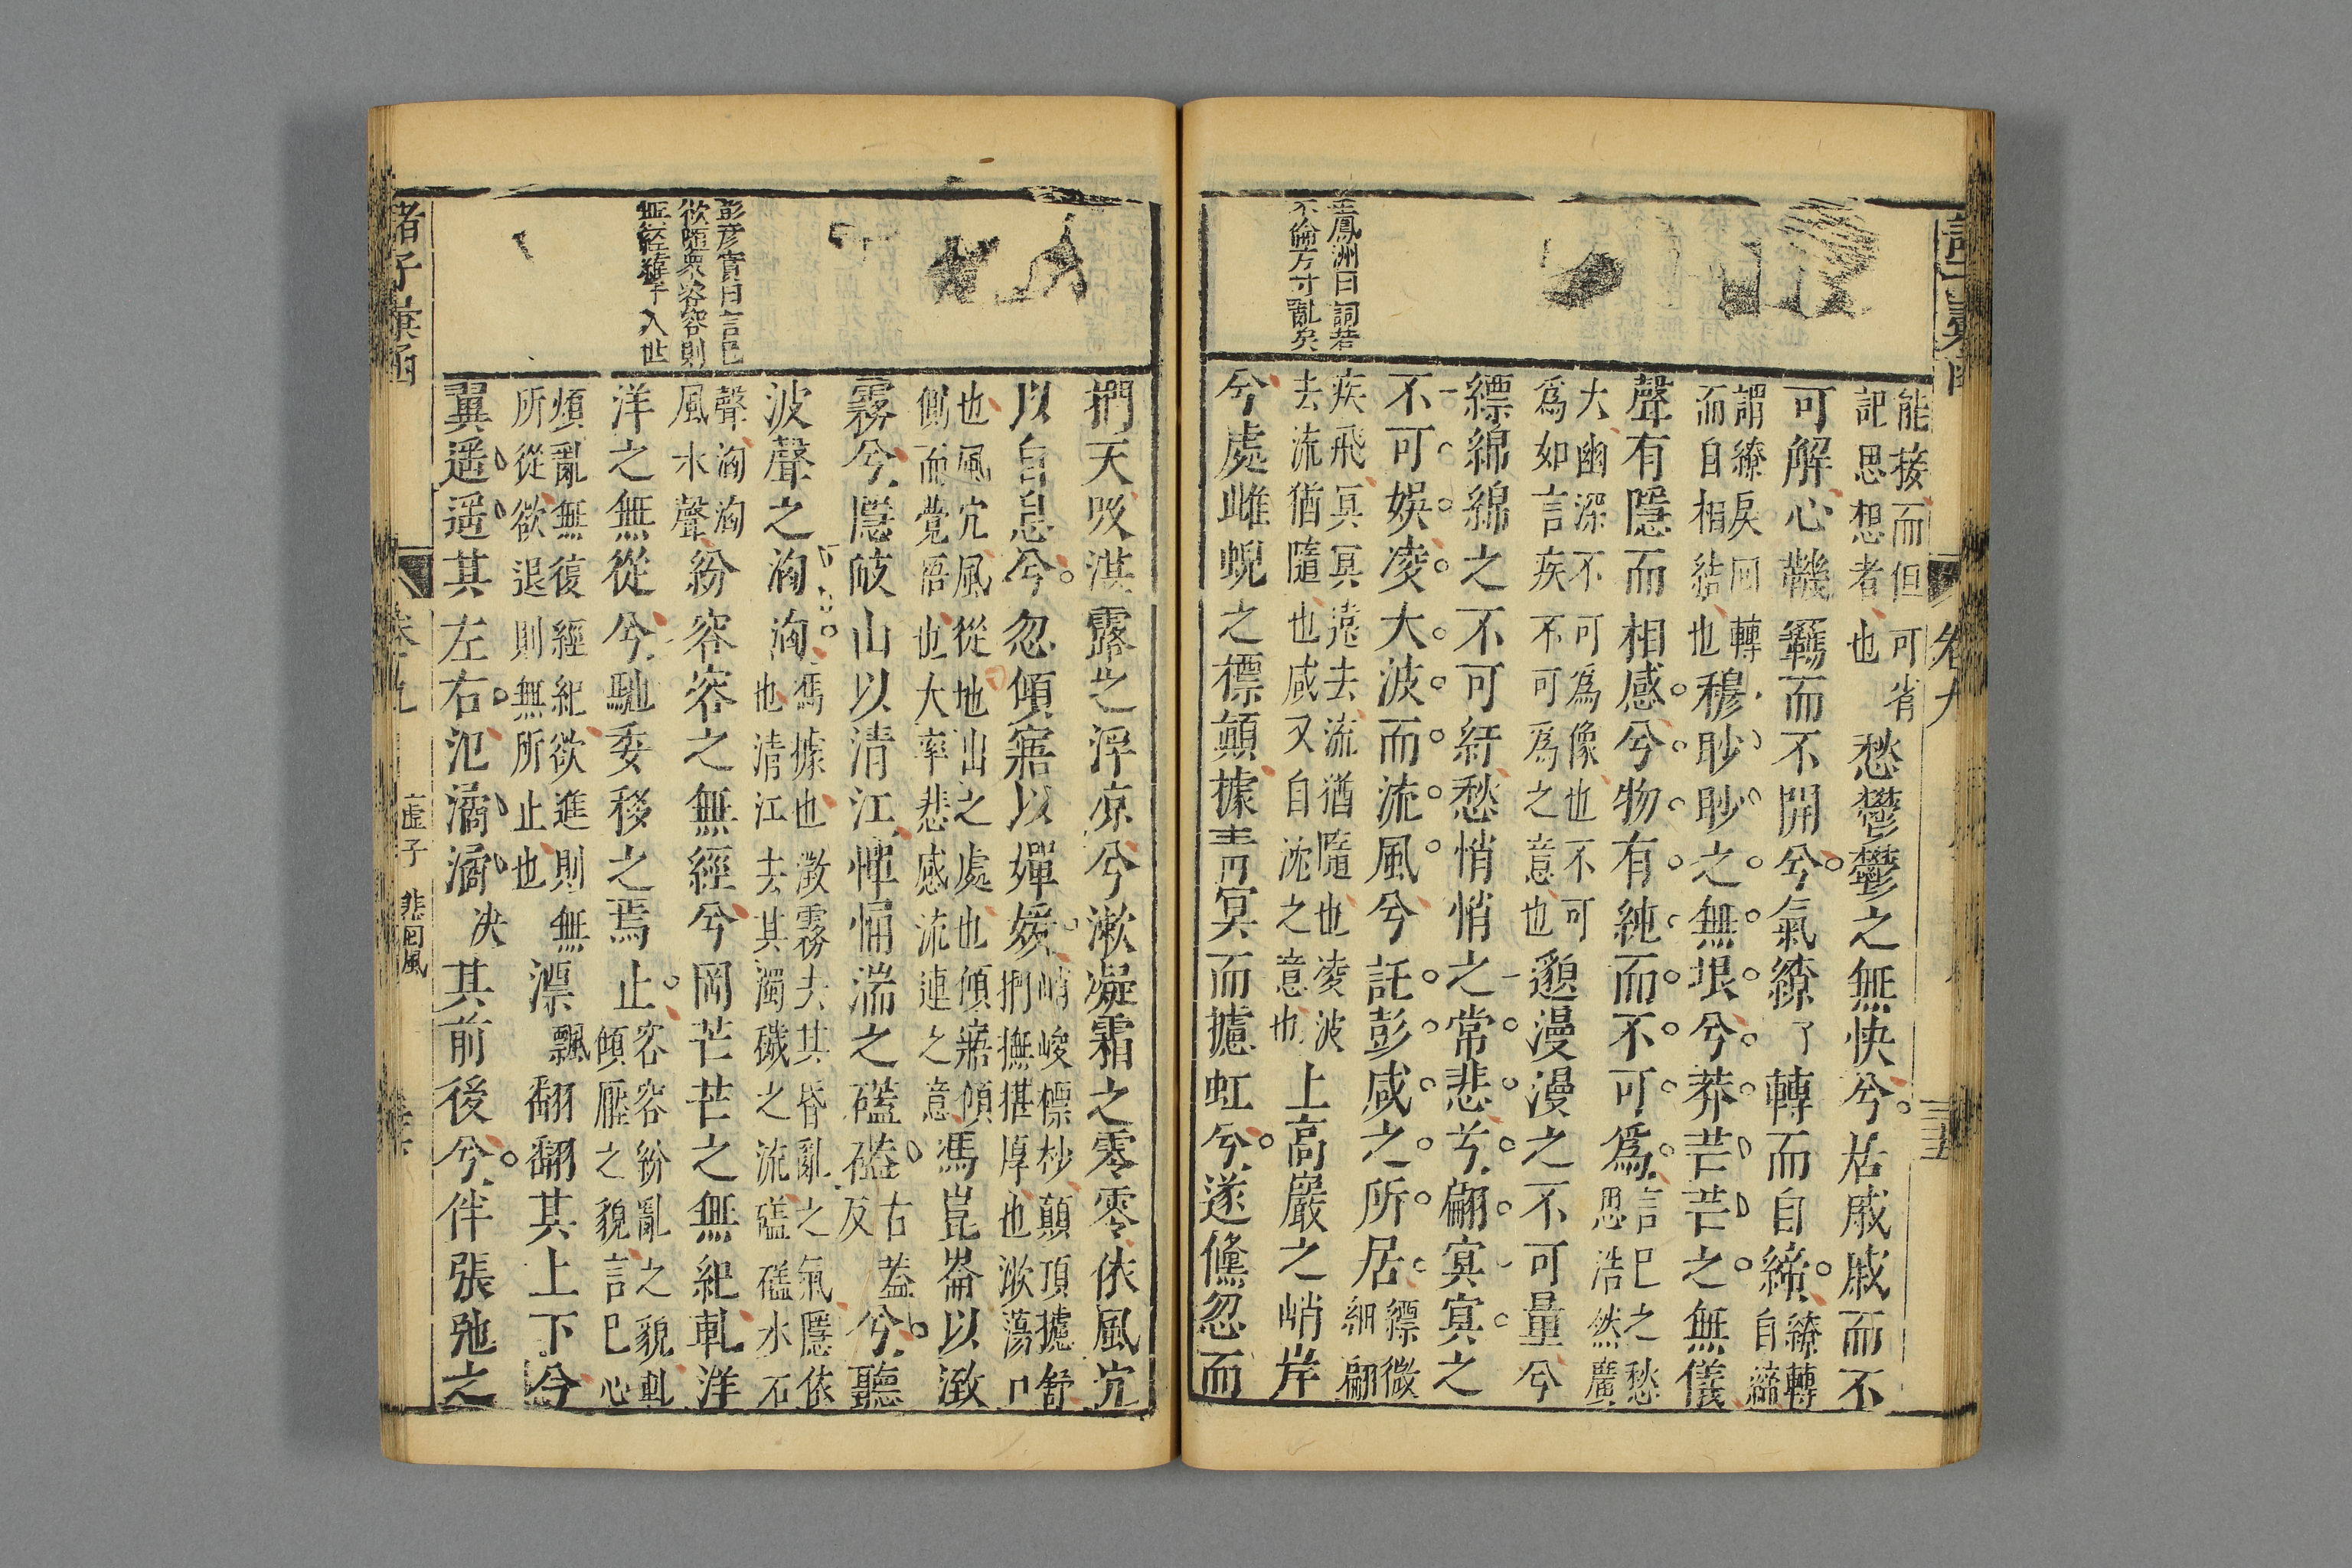 王鳳洲曰詞若
不倫方寸亂矣
能接而但可省
記思想者也愁鬱鬱之無快兮居戚戚而不
可解心鞿羈而不開兮氣繚了轉而自締繚轉自締
謂繚戾回轉
而自相結也穆眇眇之無垠兮莽芒芒之無儀
聲有隱而相感兮物有純而不可爲言已之愁思浩然廣
大幽深不可爲像也不可
爲如言疾不可爲之意也邈漫漫之不可量兮
縹綿綿之不可紆愁悄悄之常悲兮翩冥冥之
不可娛凌大波而流風兮託彭咸之所居縹微細翩
疾飛冥冥遠去流猶隨也凌波
去流猶隨也咸又自沈之意也上高巖之峭岸
兮處雌蜺之標顛據青冥而攄虹兮遂儵忽而
彭彥實曰言已
欲隨衆容容則
無經緯乎入世
捫天吸湛露之浮凉兮漱凝霜之零零依風穴
以自息兮忽傾寤以嬋媛峭峻標杪顛頂攄舒捫撫湛厚也漱蕩口
也風穴風從地出之處也傾寤傾
側而覺悟也大率悲感流連之意馮崑崙以澂
霧兮隱岐山以清江憚涌湍之礚礚古蓋反兮聽
波聲之洶洶馮據也澂霧去其昏亂之氣隱依也清江去其濁穢之流礚礚水石
聲洶洶
風水聲紛容容之無經兮罔芒芒之無紀軋洋
洋之無從兮馳委移之焉止容容紛亂之貌軋傾壓之貌言已心
煩亂無復經紀欲進則無
所從欲退則無所止也漂飄翻翻其上下兮
翼遥遥其左右氾潏潏決其前後兮伴張弛之
諸子彙函
卷九
虛子 悲回風